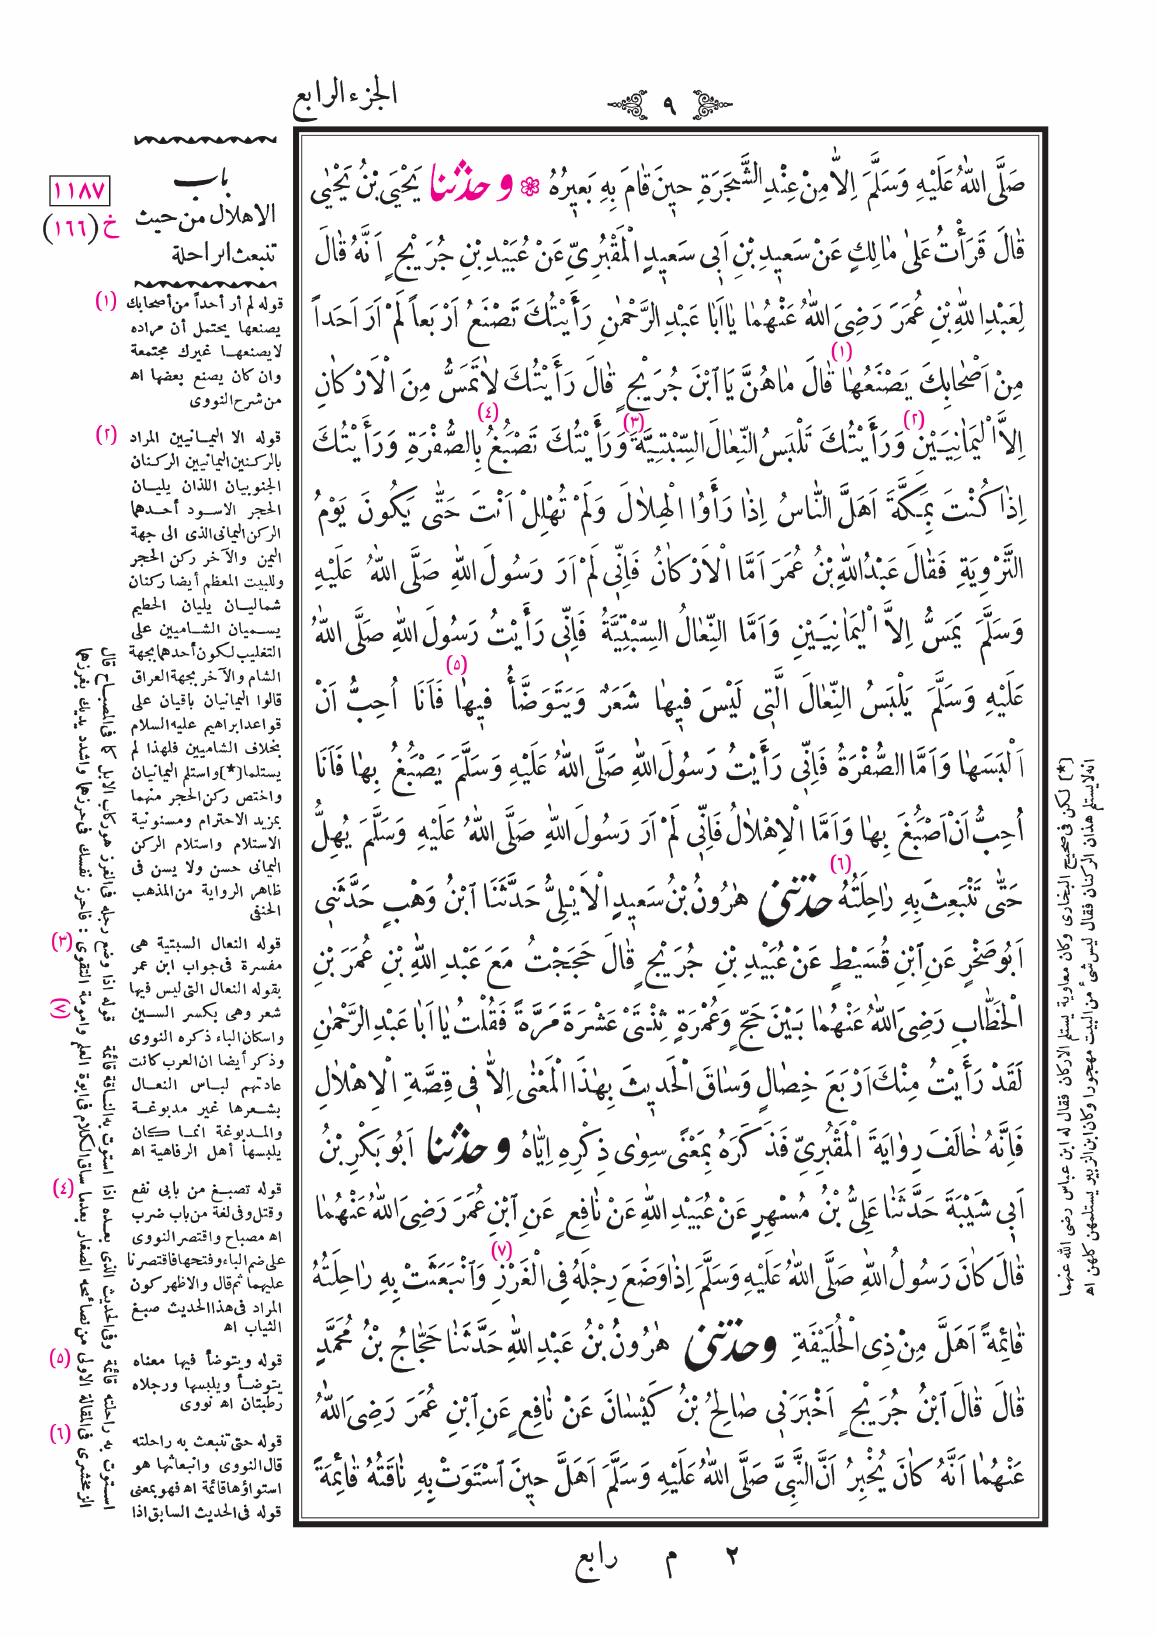 الجزء الرابع
٩
صَلَّى اللّٰهُ عَلَيْهِ وَسَلَّمَ اِلاَّ مِنْ عِنْدِ الشَّجَرَةِ حِينَ قَامَ بِهِ بَعِيرُهُ ❁ وحدثنا يَحْيَى بْنُ يَحْيٰى
قَالَ قَرَأْتُ عَلىٰ مَالِكٍ عَنْ سَعِيدِ بْنِ اَبِى سَعِيدٍ الْمَقْبُرِىِّ عَنْ عُبَيْدِ بْنِ جُرَيْجٍ اَنَّهُ قَالَ
لِعَبْدِ اللّٰهِ بْنِ عُمَرَ رَضِىَ اللّٰهُ عَنْهُمَا يَا اَبَا عَبْدِ الرَّحْمٰنِ رَأَيْتُكَ تَصْنَعُ اَرْبَعاً لَمْ اَرَ اَحَداً
مِنْ اَصْحَابِكَ يَصْنَعُهَا (١) قَالَ مَاهُنَّ يَا ابْنَ جُرَيْجٍ قَالَ رَأَيْتُكَ لاَتَمَسُّ مِنَ الْاَرْكَانِ
اِلاَّ الْيَمَانِيَيْنِ (٢) وَرَأَيْتُكَ تَلْبَسُ النِّعَالَ السِّبْتِيَّةَ (٣) وَرَأَيْتُكَ تَصْبُغُ (٤) بِالصُّفْرَةِ وَرَأَيْتُكَ
اِذَا كُنْتَ بِمَكَّةَ اَهَلَّ النَّاسُ اِذَا رَأَوُا الْهِلَالَ وَلَمْ تُهْلِلْ اَنْتَ حَتّٰى يَكُونَ يَوْمُ
التَّرْوِيَةِ فَقَالَ عَبْدُ اللّٰهِ بْنُ عُمَرَ اَمَّا الْاَرْكَانُ فَاِنِّى لَمْ اَرَ رَسُولَ اللّٰهِ صَلَّى اللّٰهُ عَلَيْهِ
وَسَلَّمَ يَمَسُّ اِلاَّ الْيَمَانِيَيْنِ وَاَمَّا النِّعَالُ السِّبْتِيَّةُ فَاِنِّى رَأَيْتُ رَسُولَ اللّٰهِ صَلَّى اللّٰهُ
عَلَيْهِ وَسَلَّمَ يَلْبَسُ النِّعَالَ الَّتِى لَيْسَ فِيهَا شَعَرٌ وَيَتَوَضَّأُ فِيهَا (٥) فَاَنَا اُحِبُّ اَنْ
اَلْبَسَهَا وَاَمَّا الصُّفْرَةُ فَاِنِّى رَأَيْتُ رَسُولَ اللّٰهِ صَلَّى اللّٰهُ عَلَيْهِ وَسَلَّمَ يَصْبُغُ بِهَا فَاَنَا
اُحِبُّ اَنْ اَصْبُغَ بِهَا وَاَمَّا الْاِهْلَالُ فَاِنِّى لَمْ اَرَ رَسُولَ اللّٰهِ صَلَّى اللّٰهُ عَلَيْهِ وَسَلَّمَ يُهِلُّ
حَتّٰى تَنْبَعِثَ بِهِ رَاحِلَتُهُ (٦) حدثنى هٰرُونُ بْنُ سَعِيدٍ الْاَيْلِىُّ حَدَّثَنَا ابْنُ وَهْبٍ حَدَّثَنِى
اَبُو صَخْرٍ عَنِ ابْنِ قُسَيْطٍ عَنْ عُبَيْدِ بْنِ جُرَيْجٍ قَالَ حَجَجْتُ مَعَ عَبْدِ اللّٰهِ بْنِ عُمَرَ بْنِ
الْخَطَّابِ رَضِىَ اللّٰهُ عَنْهُمَا بَيْنَ حَجٍّ وَعُمْرَةٍ ثِنْتَىْ عَشْرَةَ مَرَّةً فَقُلْتُ يَا اَبَا عَبْدِ الرَّحْمٰنِ
لَقَدْ رَأَيْتُ مِنْكَ اَرْبَعَ خِصَالٍ وَسَاقَ الْحَدِيثَ بِهٰذَا الْمَعْنٰى اِلاَّ فِى قِصَّةِ الْاِهْلَالِ
فَاِنَّهُ خَالَفَ رِوَايَةَ الْمَقْبُرِىِّ فَذَكَرَهُ بِمَعْنًى سِوٰى ذِكْرِهِ اِيَّاهُ وحدثنا اَبُو بَكْرِ بْنُ
اَبِى شَيْبَةَ حَدَّثَنَا عَلِىُّ بْنُ مُسْهِرٍ عَنْ عُبَيْدِ اللّٰهِ عَنْ نَافِعٍ عَنِ ابْنِ عُمَرَ رَضِىَ اللّٰهُ عَنْهُمَا
قَالَ كَانَ رَسُولُ اللّٰهِ صَلَّى اللّٰهُ عَلَيْهِ وَسَلَّمَ اِذَا وَضَعَ رِجْلَهُ فِى الْغَرْزِ (٧) وَانْبَعَثَتْ بِهِ رَاحِلَتُهُ
قَائِمَةً اَهَلَّ مِنْ ذِى الْحُلَيْفَةِ وحدثنى هٰرُونُ بْنُ عَبْدِ اللّٰهِ حَدَّثَنَا حَجَّاجُ بْنُ مُحَمَّدٍ
قَالَ قَالَ ابْنُ جُرَيْجٍ اَخْبَرَنِى صَالِحُ بْنُ كَيْسَانَ عَنْ نَافِعٍ عَنِ ابْنِ عُمَرَ رَضِىَ اللّٰهُ
عَنْهُمَا اَنَّهُ كَانَ يُخْبِرُ اَنَّ النَّبِىَّ صَلَّى اللّٰهُ عَلَيْهِ وَسَلَّمَ اَهَلَّ حِينَ اسْتَوَتْ بِهِ نَاقَتُهُ قَائِمَةً
باب
الاهلال من حيث
تنبعث الراحلة
١١٨٧
خ (١٦٦)
(١) قوله لم أر أحداً من أصحابك
يصنعها يحتمل أن مراده
لايصنعها غيرك مجتمعة
وان كان يصنع بعضها اه
من شرح النووى
(٢) قوله الا اليمانيين المراد
بالركنين اليمانيين الركنان
الجنوبيان اللذان يليان
الحجر الاسود أحدهما
الركن اليمانى الذى الى جهة
اليمن والآخر ركن الحجر
وللبيت المعظم أيضا ركنان
شماليان يليان الحطيم
يسميان الشاميين على
التغليب لكون أحدهما بجهة
الشام والآخر بجهة العراق
قالوا اليمانيان باقيان على
قواعد ابراهيم عليه السلام
بخلاف الشاميين فلهذا لم
يستلما [*] واستلم اليمانيان
واختص ركن الحجر منهما
بمزيد الاحترام ومسنونية
الاستلام واستلام الركن
اليمانى حسن ولا يسن فى
ظاهر الرواية من المذهب
الحنفى
(٣) قوله النعال السبتية هى
مفسرة فى جواب ابن عمر
بقوله النعال التى ليس فيها
شعر وهى بكسر السين
واسكان الباء ذكره النووى
وذكر أيضا ان العرب كانت
عادتهم لباس النعال
بشعرها غير مدبوغة
والمدبوغة انما كان
يلبسها أهل الرفاهية اه
(٤) قوله تصبغ من بابى نفع
وقتل وفى لغة من باب ضرب
اه مصباح واقتصر النووى
على ضم الباء وفتحها فاقتصرنا
عليهما ثم قال والاظهر كون
المراد فى هذا الحديث صبغ
الثياب اه
(٥) قوله ويتوضأ فيها معناه
يتوضأ ويلبسها ورجلاه
رطبتان اه نووى
(٦) قوله حتى تنبعث به راحلته
قال النووى وانبعاثها هو
استواؤها قائمة اه فهو بمعنى
قوله فى الحديث السابق اذا
استوت به راحلته قائمة وفى الحديث الذى بعده اذا استوت به الناقة قائمة
(٧) قوله اذا وضع رجله فى الغرز هو ركاب الابل كما فى المصباح قال
الزمخشرى فى المقالة الاولى من نصائحه الصغار بعدما ساق الكلام فى ابوة العلم وامومة التقوى : فاحرز نفسك فى حرزها واشدد يديك بغرزها
[*] لكن فى صحيح البخارى وكان معاوية يستلم الاركان فقال له ابن عباس رضى الله عنهما
انه لا يستلم هذان الركنان فقال ليس شئ من البيت مهجورا وكان ابن الزبير يستلمهن كلهن اه
٢ م رابع